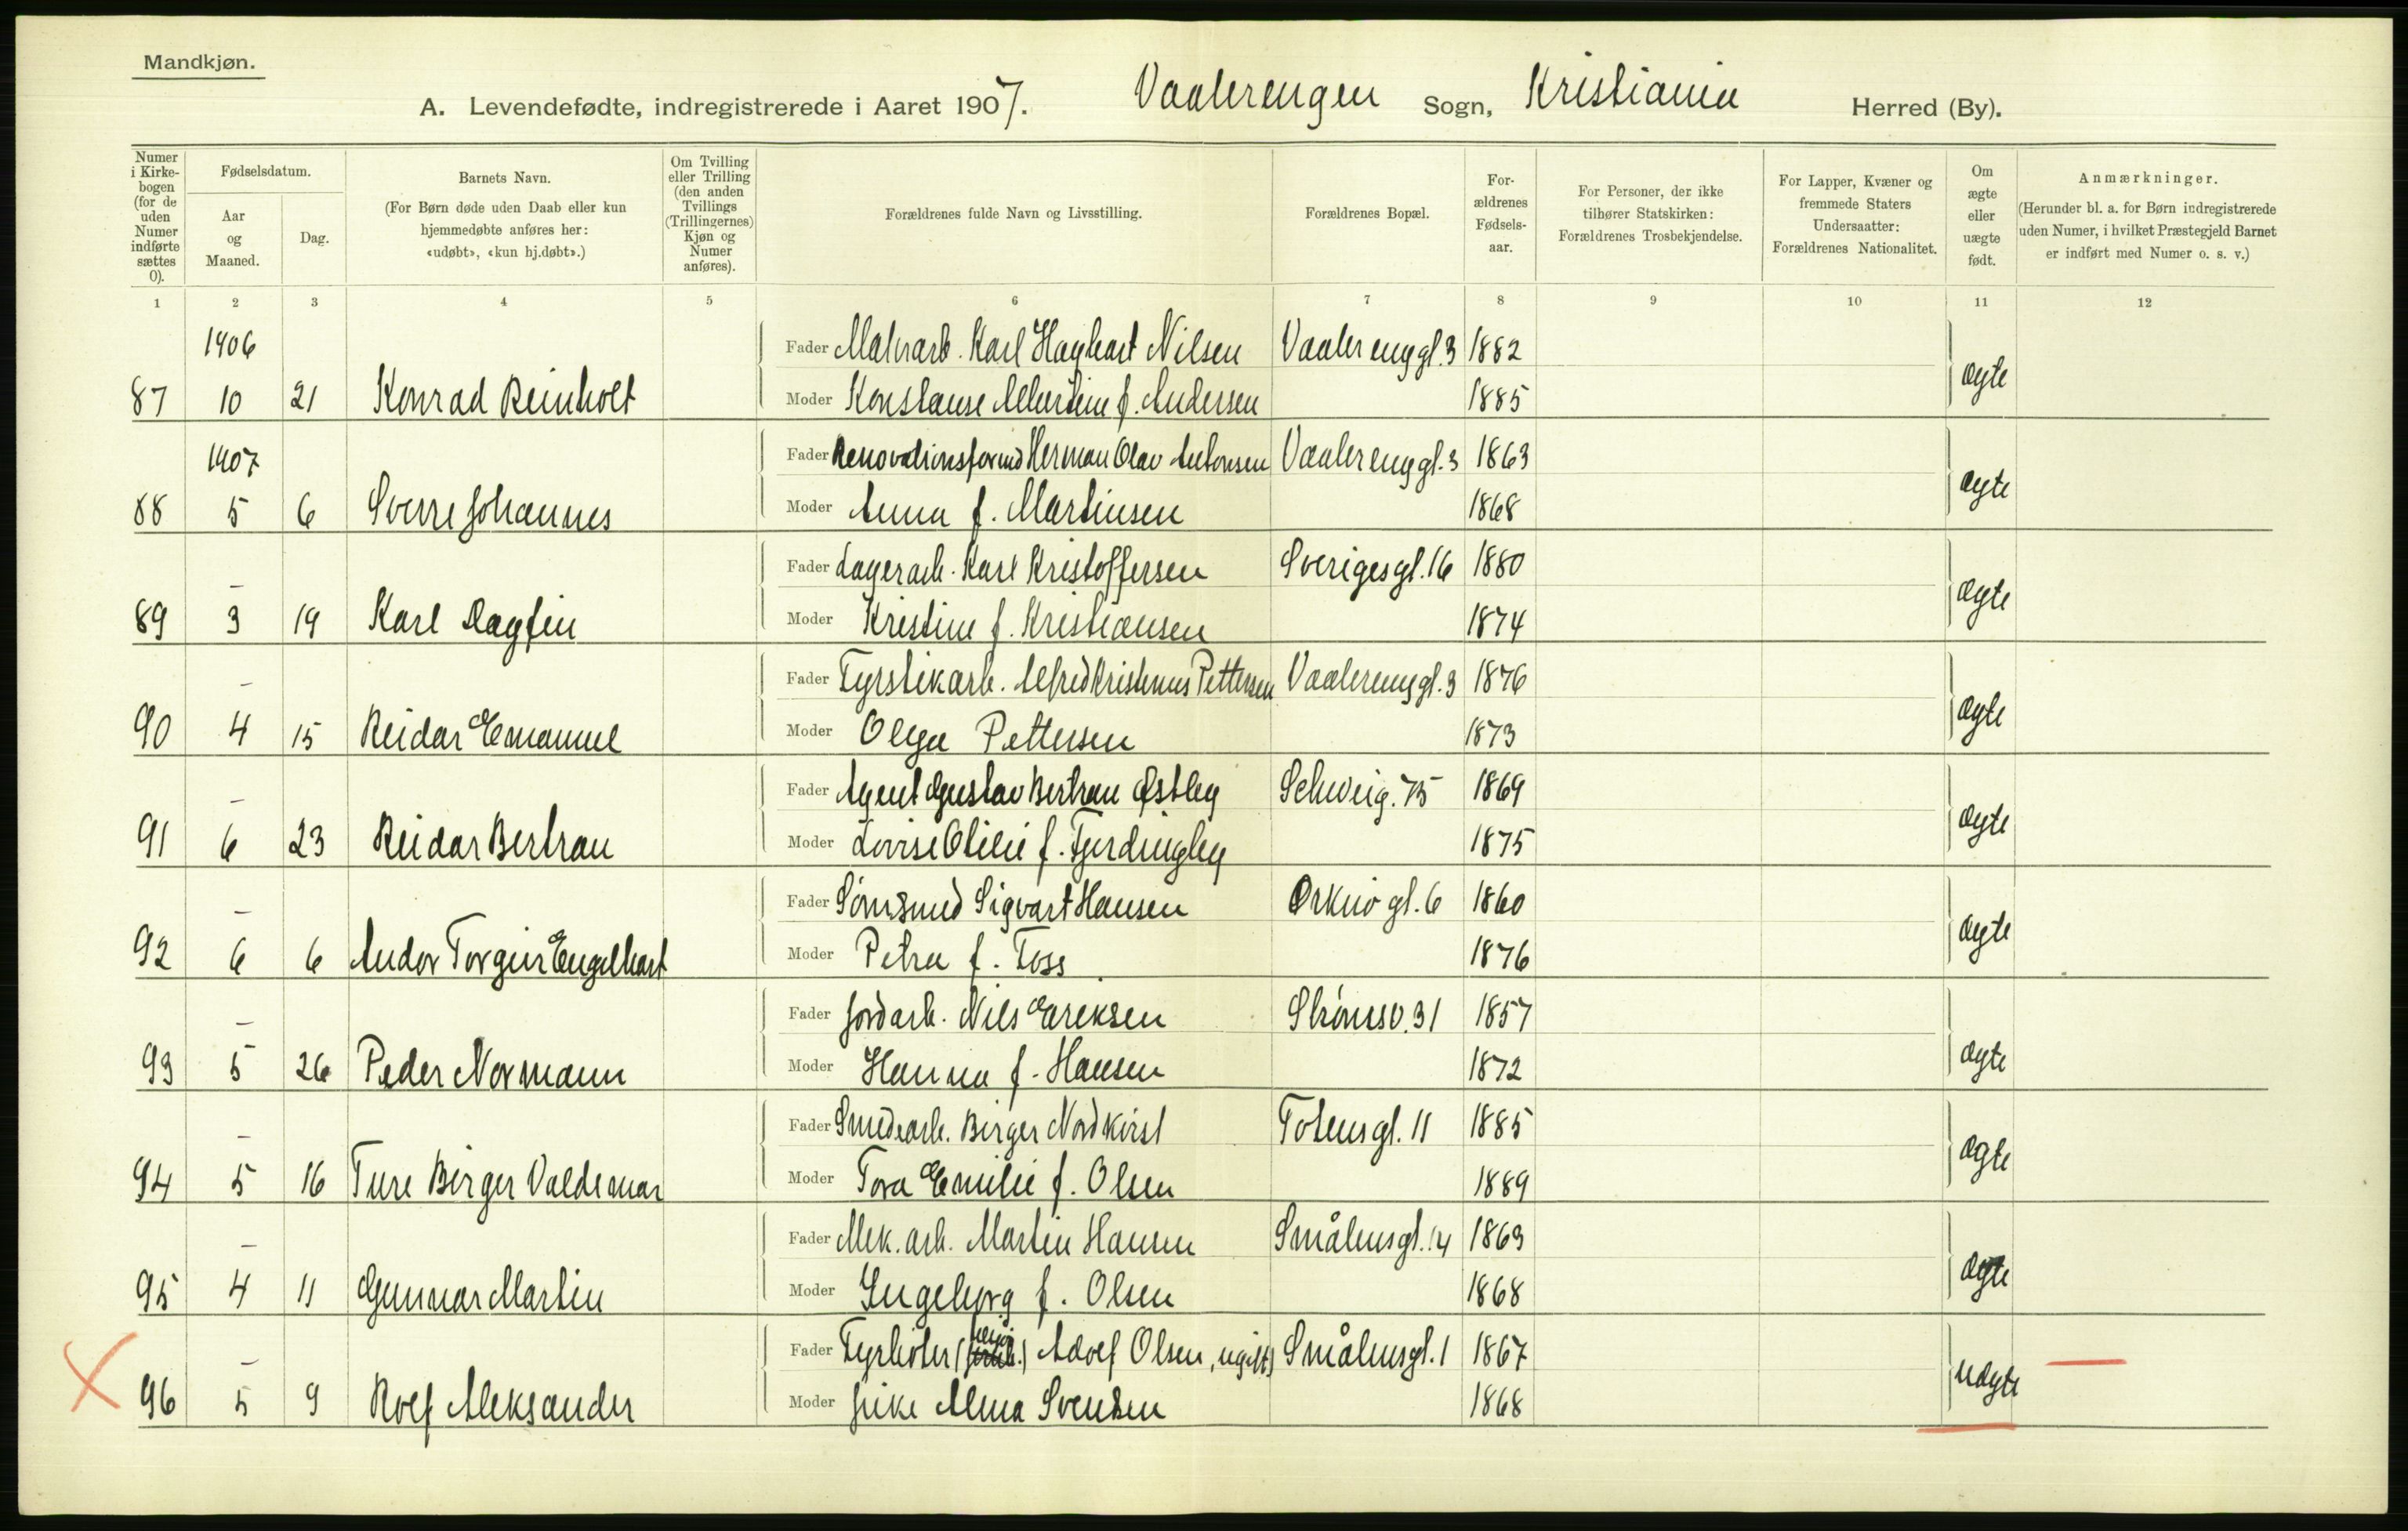 Mandkjøn.
A. Levendefødte, indregistrerede i Aaret 1907. Vaalerengen Sogn, Kristiania Herred (By).
Numer i Kirkebogen (for de uden Numer indførte sættes 0).
Fødselsdatum.
Aar og Maaned.
Dag.
Barnets Navn.
(For Børn døde uden Daab eller kun hjemmedøbte anføres her: «udøbt», «kun hj.døbt».)
Om Tvilling eller Trilling (den anden Tvillings (Trillingernes) Kjøn og Numer anføres).
Forældrenes fulde Navn og Livsstilling.
Forældrenes Bopæl.
Forældrenes Fødselsaar.
For Personer, der ikke tilhører Statskirken: Forældrenes Trosbekjendelse.
For Lapper, Kvæner og fremmede Staters Undersaatter: Forældrenes Nationalitet.
Om ægte eller uægte født.
Anmærkninger.
(Herunder bl. a. for Børn indregistrerede uden Numer, i hvilket Præstegjeld Barnet er indført med Numer o. s. v.)
1 2 3 4 5 6 7 8 9 10 11 12
1906 Fader Malerarb. Karl Haghart Nilsen Vaalerenggt. 3 1882
87 10 21 Konrad Reinholt Moder Konstanse Albertine f. Andersen 1885 ægte
1907 Fader Renovationsformd Herman Olav Antonsen Vaalerenggt. 3 1863
88 5 6 Sverre Johannes Moder Anna f. Martinsen 1868 ægte
– Fader Lagerarb. Karl Kristoffersen Sverigesgt. 16 1880
89 3 19 Karl Dagfin Moder Kristine f. Kristiansen 1874 ægte
– Fader Fyrstikarb. Alfred Kristenus Pettersen Vaalerenggt. 3 1876
90 4 15 Reidar Emanuel Moder Olga Pettersen 1873 ægte
– Fader Agent Gustav Bertran Østby Schweig. 75 1869
91 6 23 Reidar Bertran Moder Lovise Otilie f. Fjerdingby 1875 ægte
– Fader Sømsmed Sigvart Hansen Orknøgt. 6 1860
92 6 6 Andor Torgeir Engelhart Moder Petra f. Foss 1876 ægte
– Fader Jordarb. Nils Ereksen Strømsv. 31 1857
93 5 26 Peder Normann Moder Hanna f. Hansen 1872 ægte
– Fader Smedearb. Birger Nordkvist Totensgt. 11 1885
94 5 16 Ture Birger Valdemar Moder Tora Emilie f. Olsen 1889 ægte
– Fader Mek. arb. Martin Hansen Smålensgt. 14 1863
95 4 11 Gunnar Martin Moder Ingeborg f. Olsen 1868 ægte
– Fader Fyrbøter Adolf Olsen, ugift) Smålensgt. 1 1867
96 5 9 Rolf Aleksander Moder Alma Svensen 1868 uægte